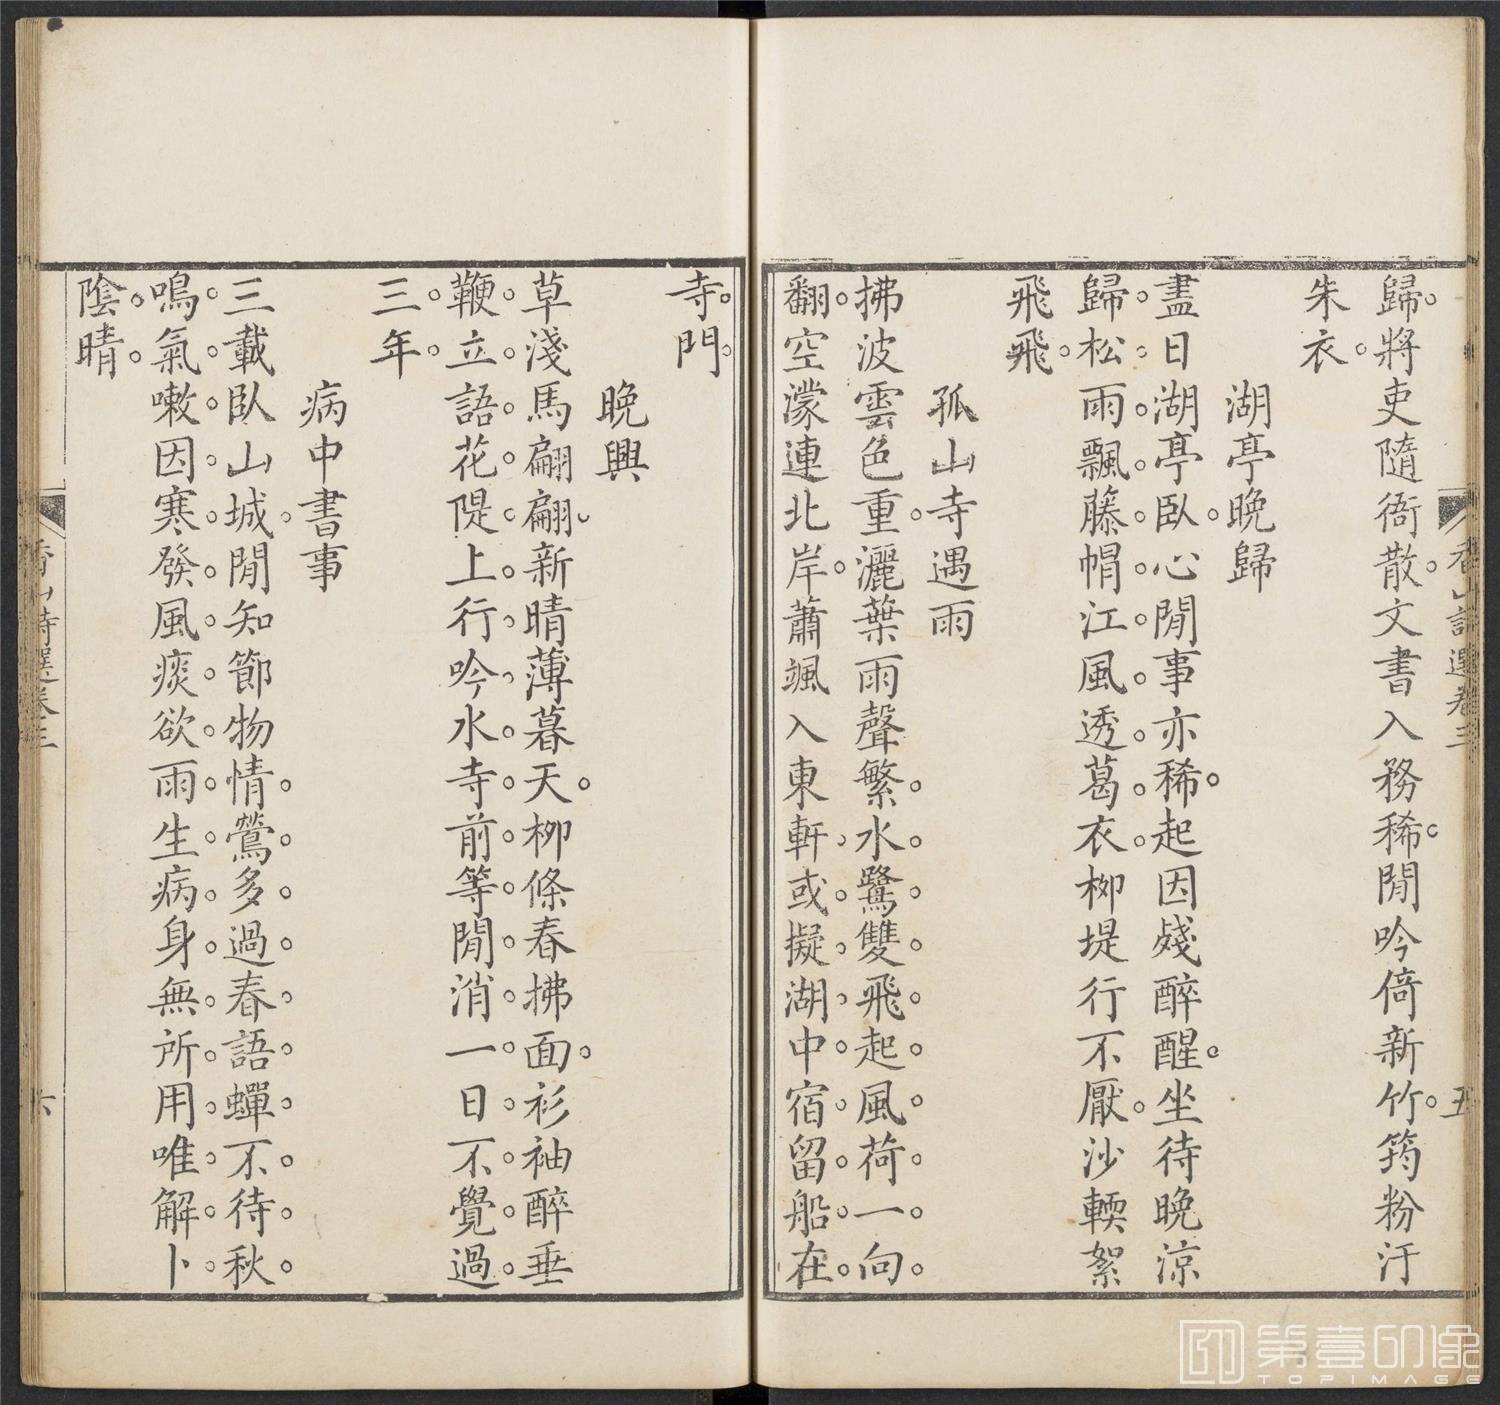 歸將吏隨衙散文書入務稀閒吟倚新竹筠粉汙
朱衣
湖亭晚歸
盡日湖亭臥心閒事亦稀起因殘醉醒坐待晚涼
歸松雨飄藤帽江風透葛衣柳堤行不厭沙輭絮
飛飛
孤山寺遇雨
拂波雲色重灑葉雨聲繁水鷺雙飛起風荷一向
翻空濛連北岸蕭颯入東軒或擬湖中宿留船在
寺門
晚興
草淺馬翩翩新晴薄暮天柳條春拂面衫袖醉垂
鞭立語花隄上行吟水寺前等閒消一日不覺過
三年
病中書事
三載臥山城閒知節物情鶯多過春語蟬不待秋
鳴氣嗽因寒發風痰欲雨生病身無所用唯解卜
陰晴
香山詩選卷三
五
香山詩選卷三
六
第壹印像
TOPIMAGE